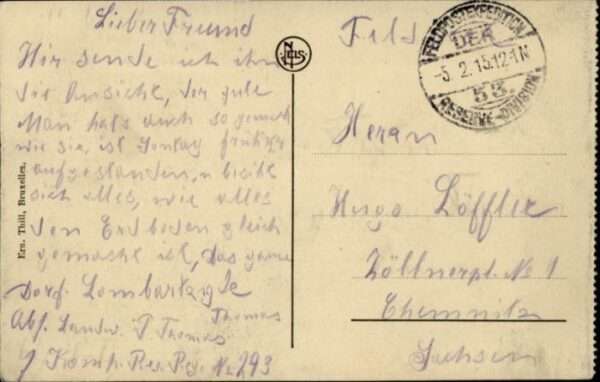 Lieber Freund
Hir sende ich ihn
die Ansicht, der gute
Man hats auch so gemacht
wie sie, ist Sontag früher
aufgestanden, u
sich alles, wie alles
den Erdboden gleich
gemacht ist, das ganze
Dorf. Lombartzyde
Thomas
Abs. Landw. P Thomas
7 Komp. Res. Rg. No 293
Ern. Thill, Bruxelles.
NELS
Feld
FELDPOSTEXPEDITION
DER
-5.2.15.12-1N
53.
RESERVE-DIVISION
Herrn
Hugo Löffler
Zöllnerpl. No 1
Chemnitz
Sachsen